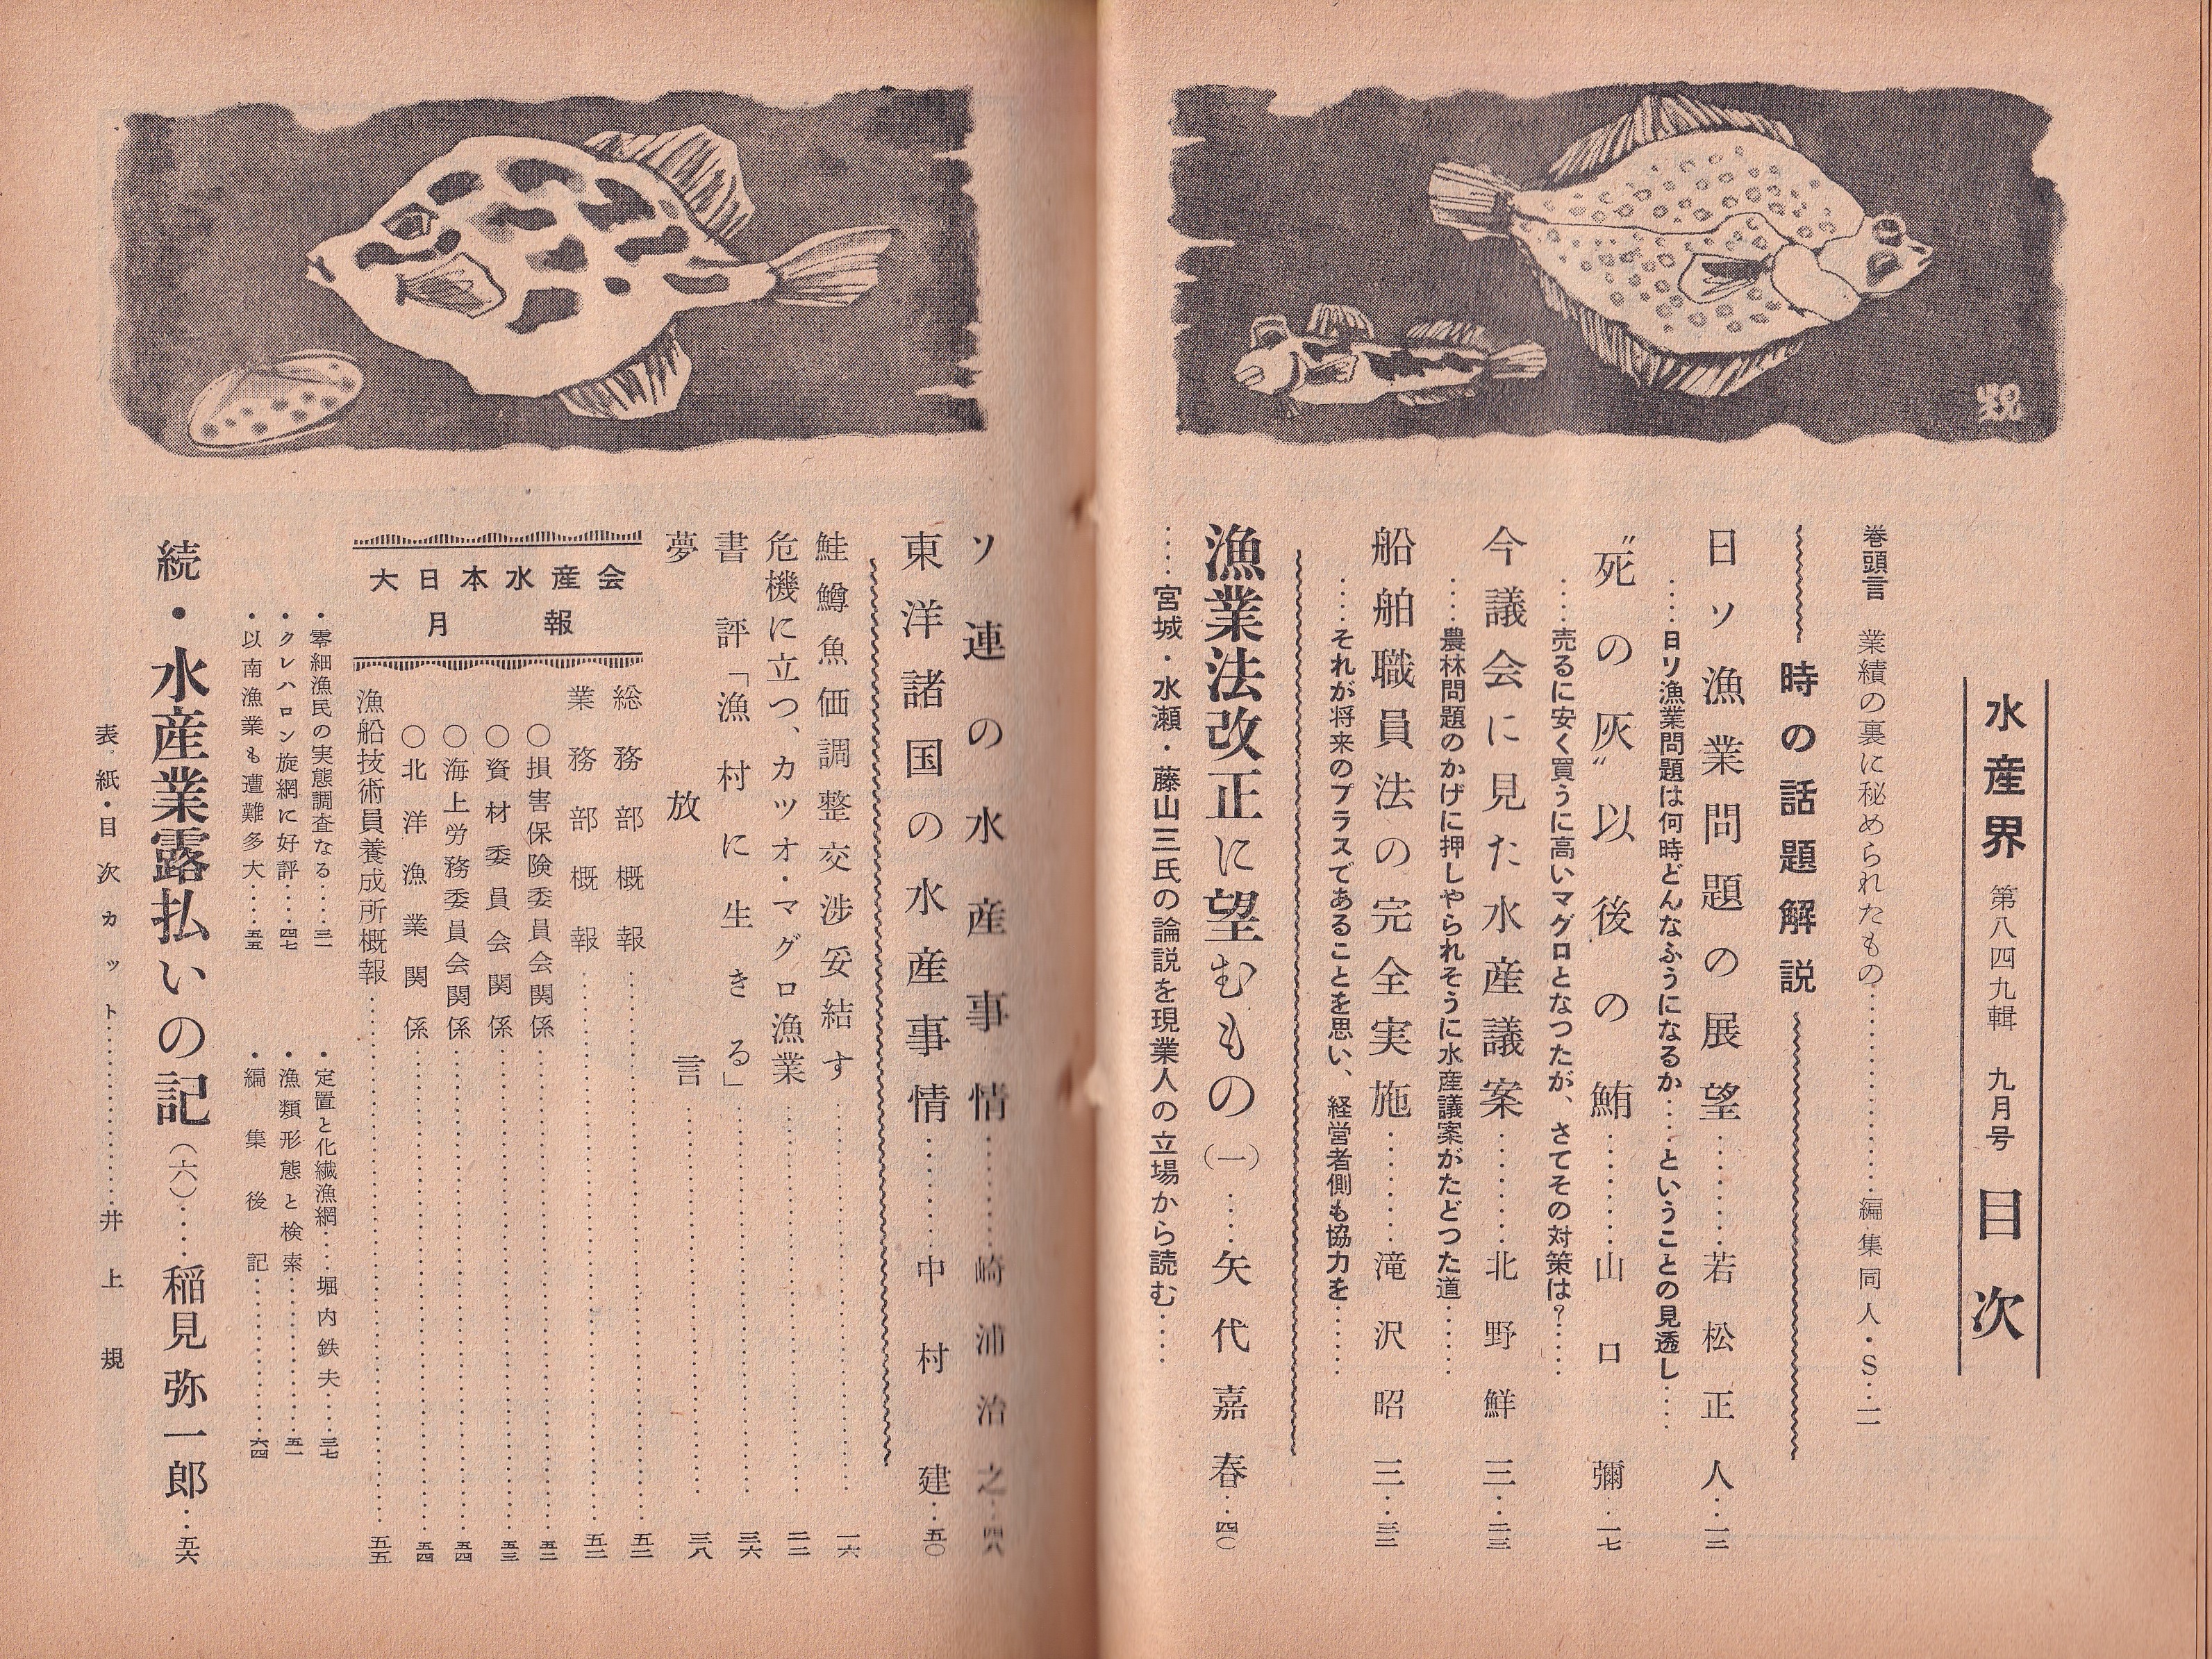 水産界 第八四九輯 九月号 目次
巻頭言 業績の裏に秘められたもの……………編集同人・S…二
時の話題解説
日ソ漁業問題の展望………若松正人…一二
……日ソ漁業問題は何時どんなふうになるか……ということの見透し……
〝死の灰〟以後の鮪………山口彌…一七
……売るに安く買うに高いマグロとなつたが、さてその対策は?……
今議会に見た水産議案………北野鮮三…二三
……農林問題のかげに押しやられそうに水産議案がたどつた道……
船舶職員法の完全実施………滝沢昭三…三三
……それが将来のプラスであることを思い、経営者側も協力を……
漁業法改正に望むもの(一)……矢代嘉春…四〇
……宮城・水瀬・藤山三氏の論説を現業人の立場から読む……
ソ連の水産事情………崎浦治之…四六
東洋諸国の水産事情………中村建…五〇
鮭鱒魚価調整交渉妥結す………一六
危機に立つ、カツオ・マグロ漁業………二二
書評「漁村に生きる」………三六
夢放言………三八
大日本水産会
月報
総務部概報………五二
業務部概報………五二
〇損害保険委員会関係………五三
〇資材委員会関係………五三
〇海上労務委員会関係………五四
〇北洋漁業関係………五四
漁船技術員養成所概報………五五
・零細漁民の実態調査なる……三一
・クレハロン旋網に好評……四七
・以南漁業も遭難多大……五五
・定置と化繊漁網……堀内鉄夫……三七
・漁類形態と検索………五一
・編集後記………六四
続・水産業露払いの記(六)……稲見弥一郎…五六
表紙・目次カット………井上規